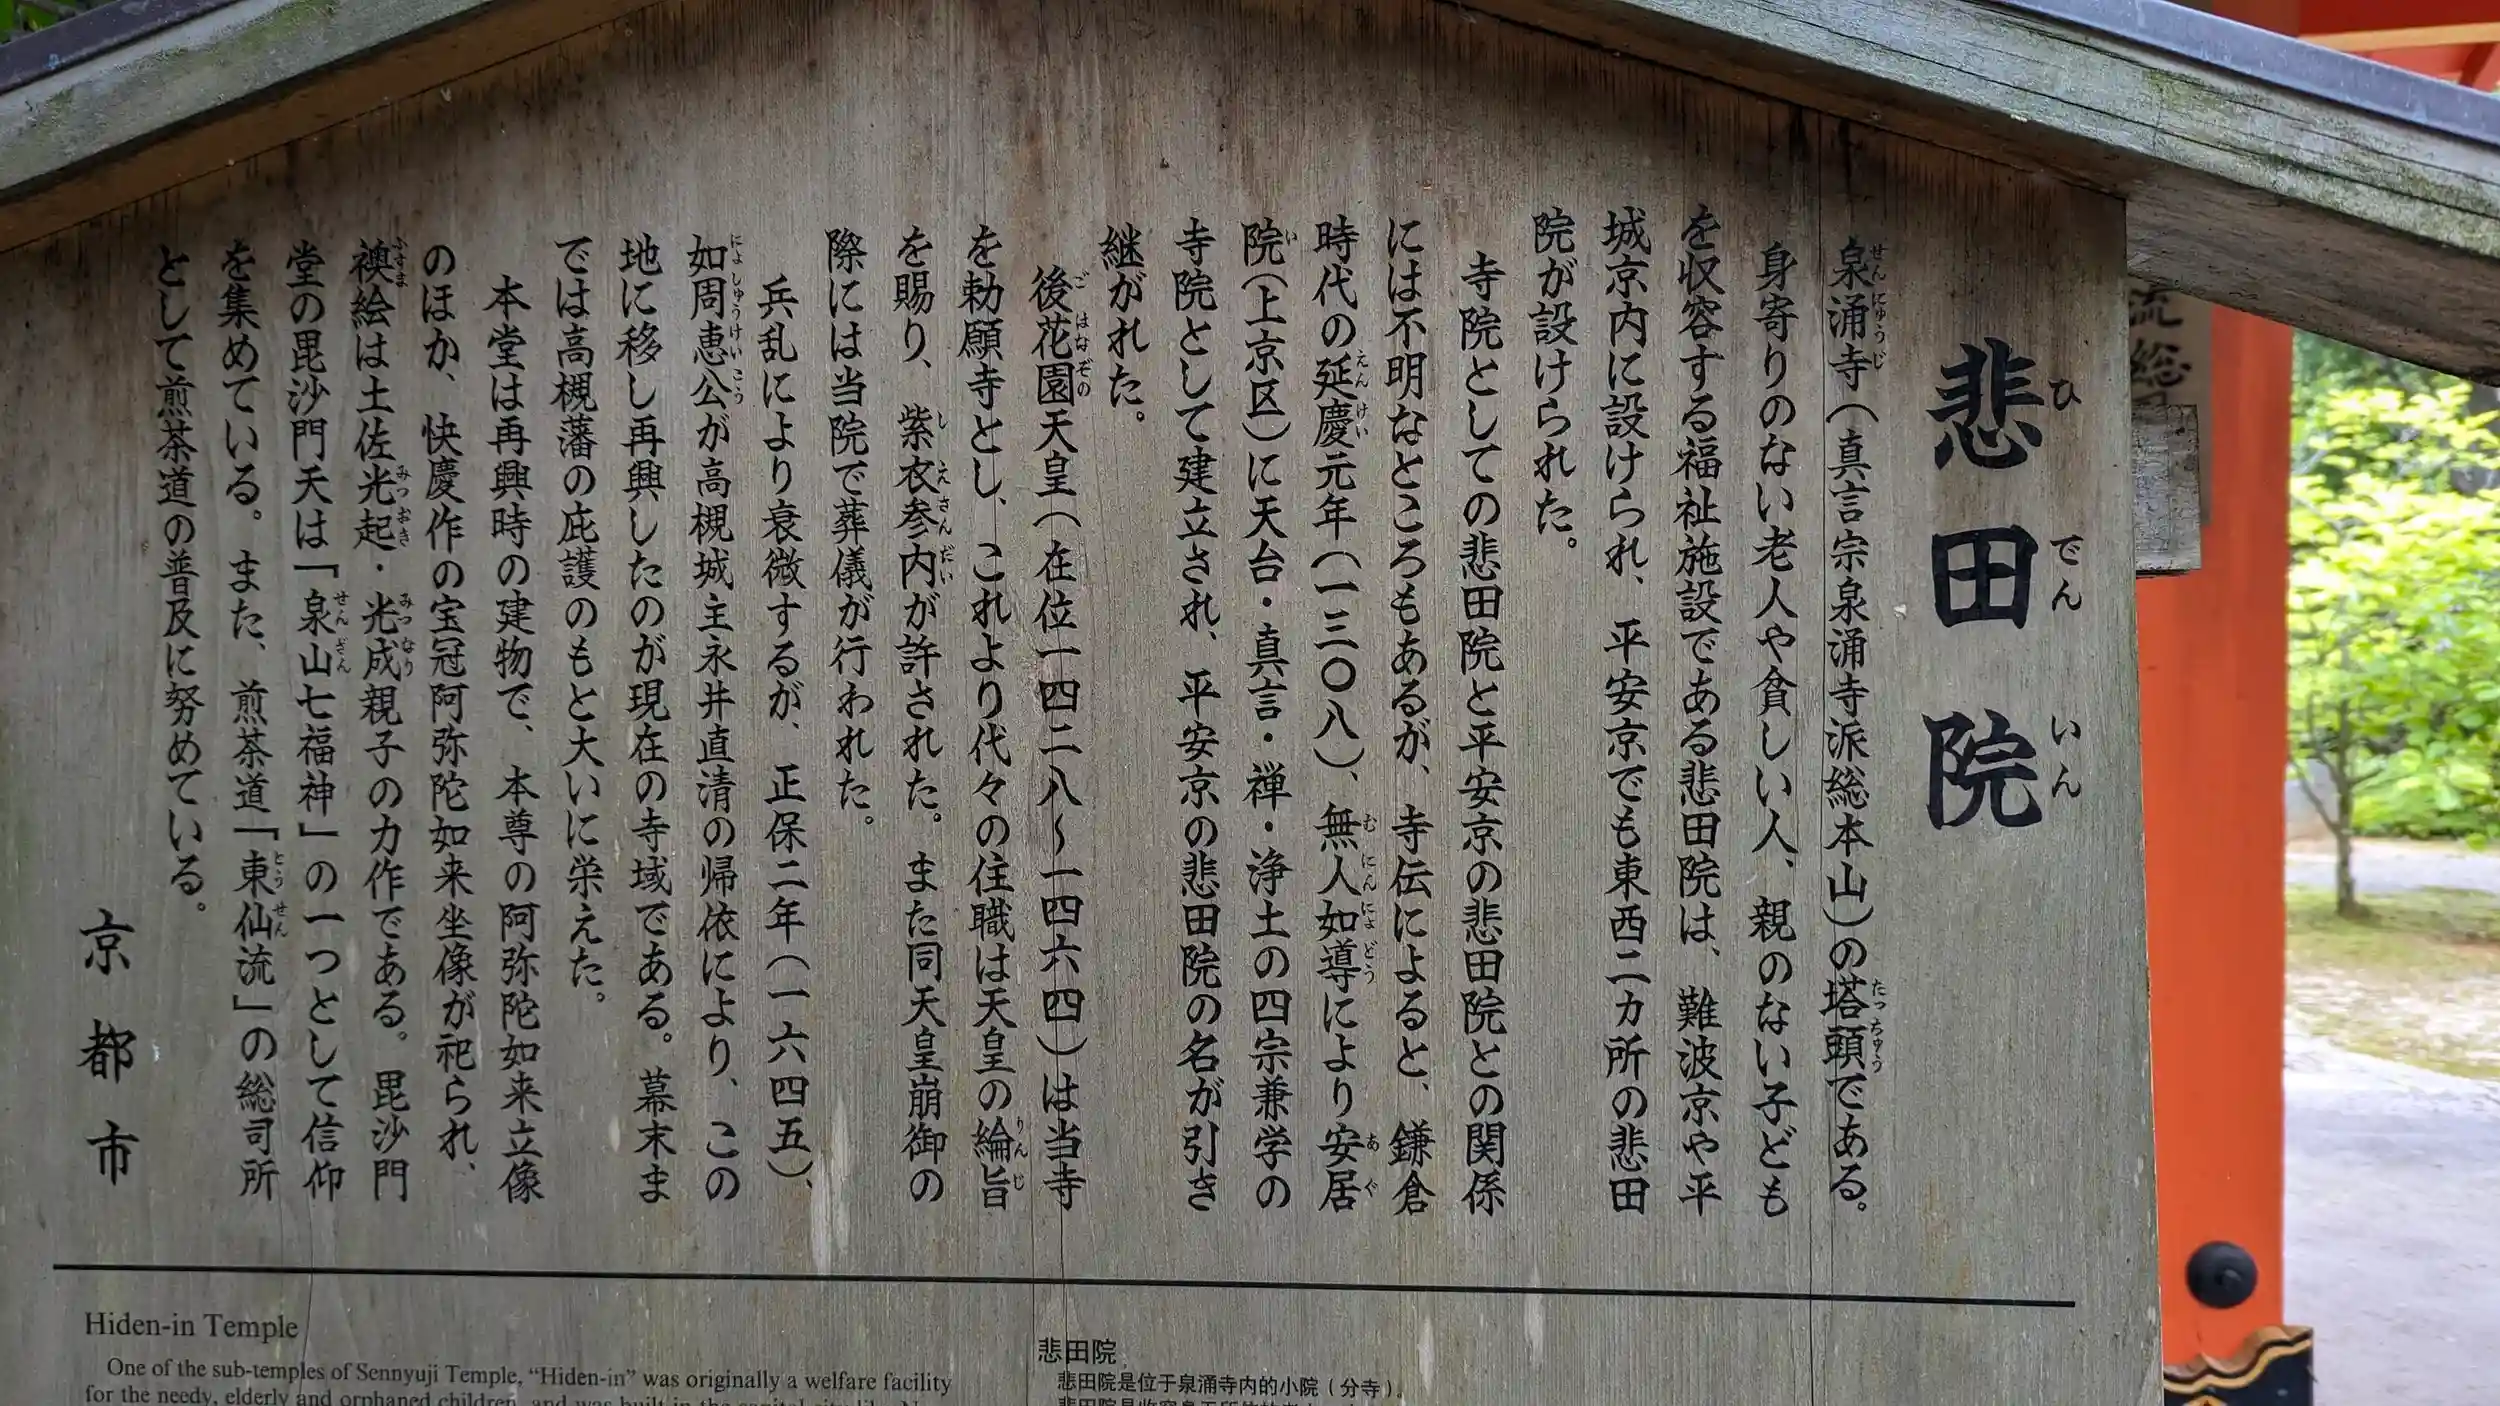 悲田院
ひでんいん
泉涌寺（真言宗泉涌寺派総本山）の塔頭である。
せんにゅうじ
たっちゅう
身寄りのない老人や貧しい人、親のない子ども
を収容する福祉施設である悲田院は、難波京や平
城京内に設けられ、平安京でも東西二カ所の悲田
院が設けられた。
寺院としての悲田院と平安京の悲田院との関係
には不明なところもあるが、寺伝によると、鎌倉
時代の延慶元年（一三〇八）、無人如導により安居
えんけい
むにんにょどう
あぐ
院（上京区）に天台・真言・禅・浄土の四宗兼学の
い
寺院として建立され、平安京の悲田院の名が引き
継がれた。
後花園天皇（在位一四二八〜一四六四）は当寺
ごはなぞの
を勅願寺とし、これより代々の住職は天皇の綸旨
りんじ
を賜り、紫衣参内が許された。また同天皇崩御の
しえさんだい
際には当院で葬儀が行われた。
兵乱により衰微するが、正保二年（一六四五）、
如周恵公が高槻城主永井直清の帰依により、この
にょしゅうけいこう
地に移し再興したのが現在の寺域である。幕末ま
では高槻藩の庇護のもと大いに栄えた。
本堂は再興時の建物で、本尊の阿弥陀如来立像
のほか、快慶作の宝冠阿弥陀如来坐像が祀られ、
襖絵は土佐光起・光成親子の力作である。毘沙門
ふすま
みつおき
みつなり
堂の毘沙門天は「泉山七福神」の一つとして信仰
せんざん
を集めている。また、煎茶道「東仙流」の総司所
とうせん
として煎茶道の普及に努めている。
京都市
Hiden-in Temple
One of the sub-temples of Sennyuji Temple, “Hiden-in” was originally a welfare facility
for the needy, elderly and orphaned children, and was built in the capital city like
悲田院
悲田院是位于泉涌寺内的小院（分寺）。
流総